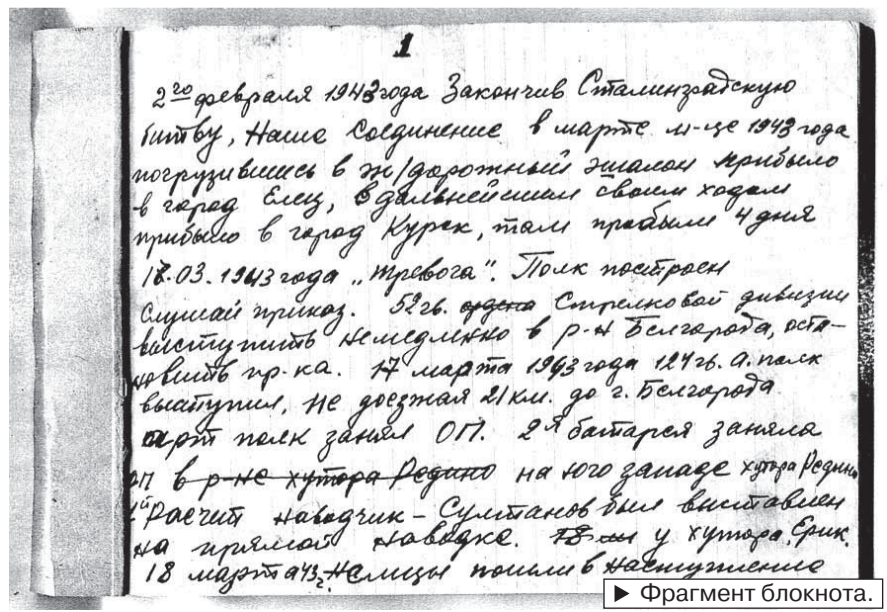 1
2го февраля 1943 года Закончив Сталинградскую
битву, Наше Соединение в марте м-це 1943 года
погрузившись в ж/дорожный эшалон прибыло
в город Елец, в дальнейшем своим ходом
прибыло в город Курск, там пробыли 4 дня
17.03.1943 года „тревога". Полк построен
Слушай приказ. 52 гв. Стрелковой дивизии
выступить немедленно в р-н Белгорода, оста-
новить пр-ка. 17 марта 1943 года 124 гв. а. полк
выступил, не доезжая 21 км. до г. Белгорода
арт полк занял ОП. 2я батарея заняла
ОП в р-не хутора Редино на юго западе хутора Редино
й Расчет наводчик - Султанов был выставлен
на прямой наводке. 18 у хутора, Ерик.
18 марта 43г. Немцы пошли в наступление
► Фрагмент блокнота.